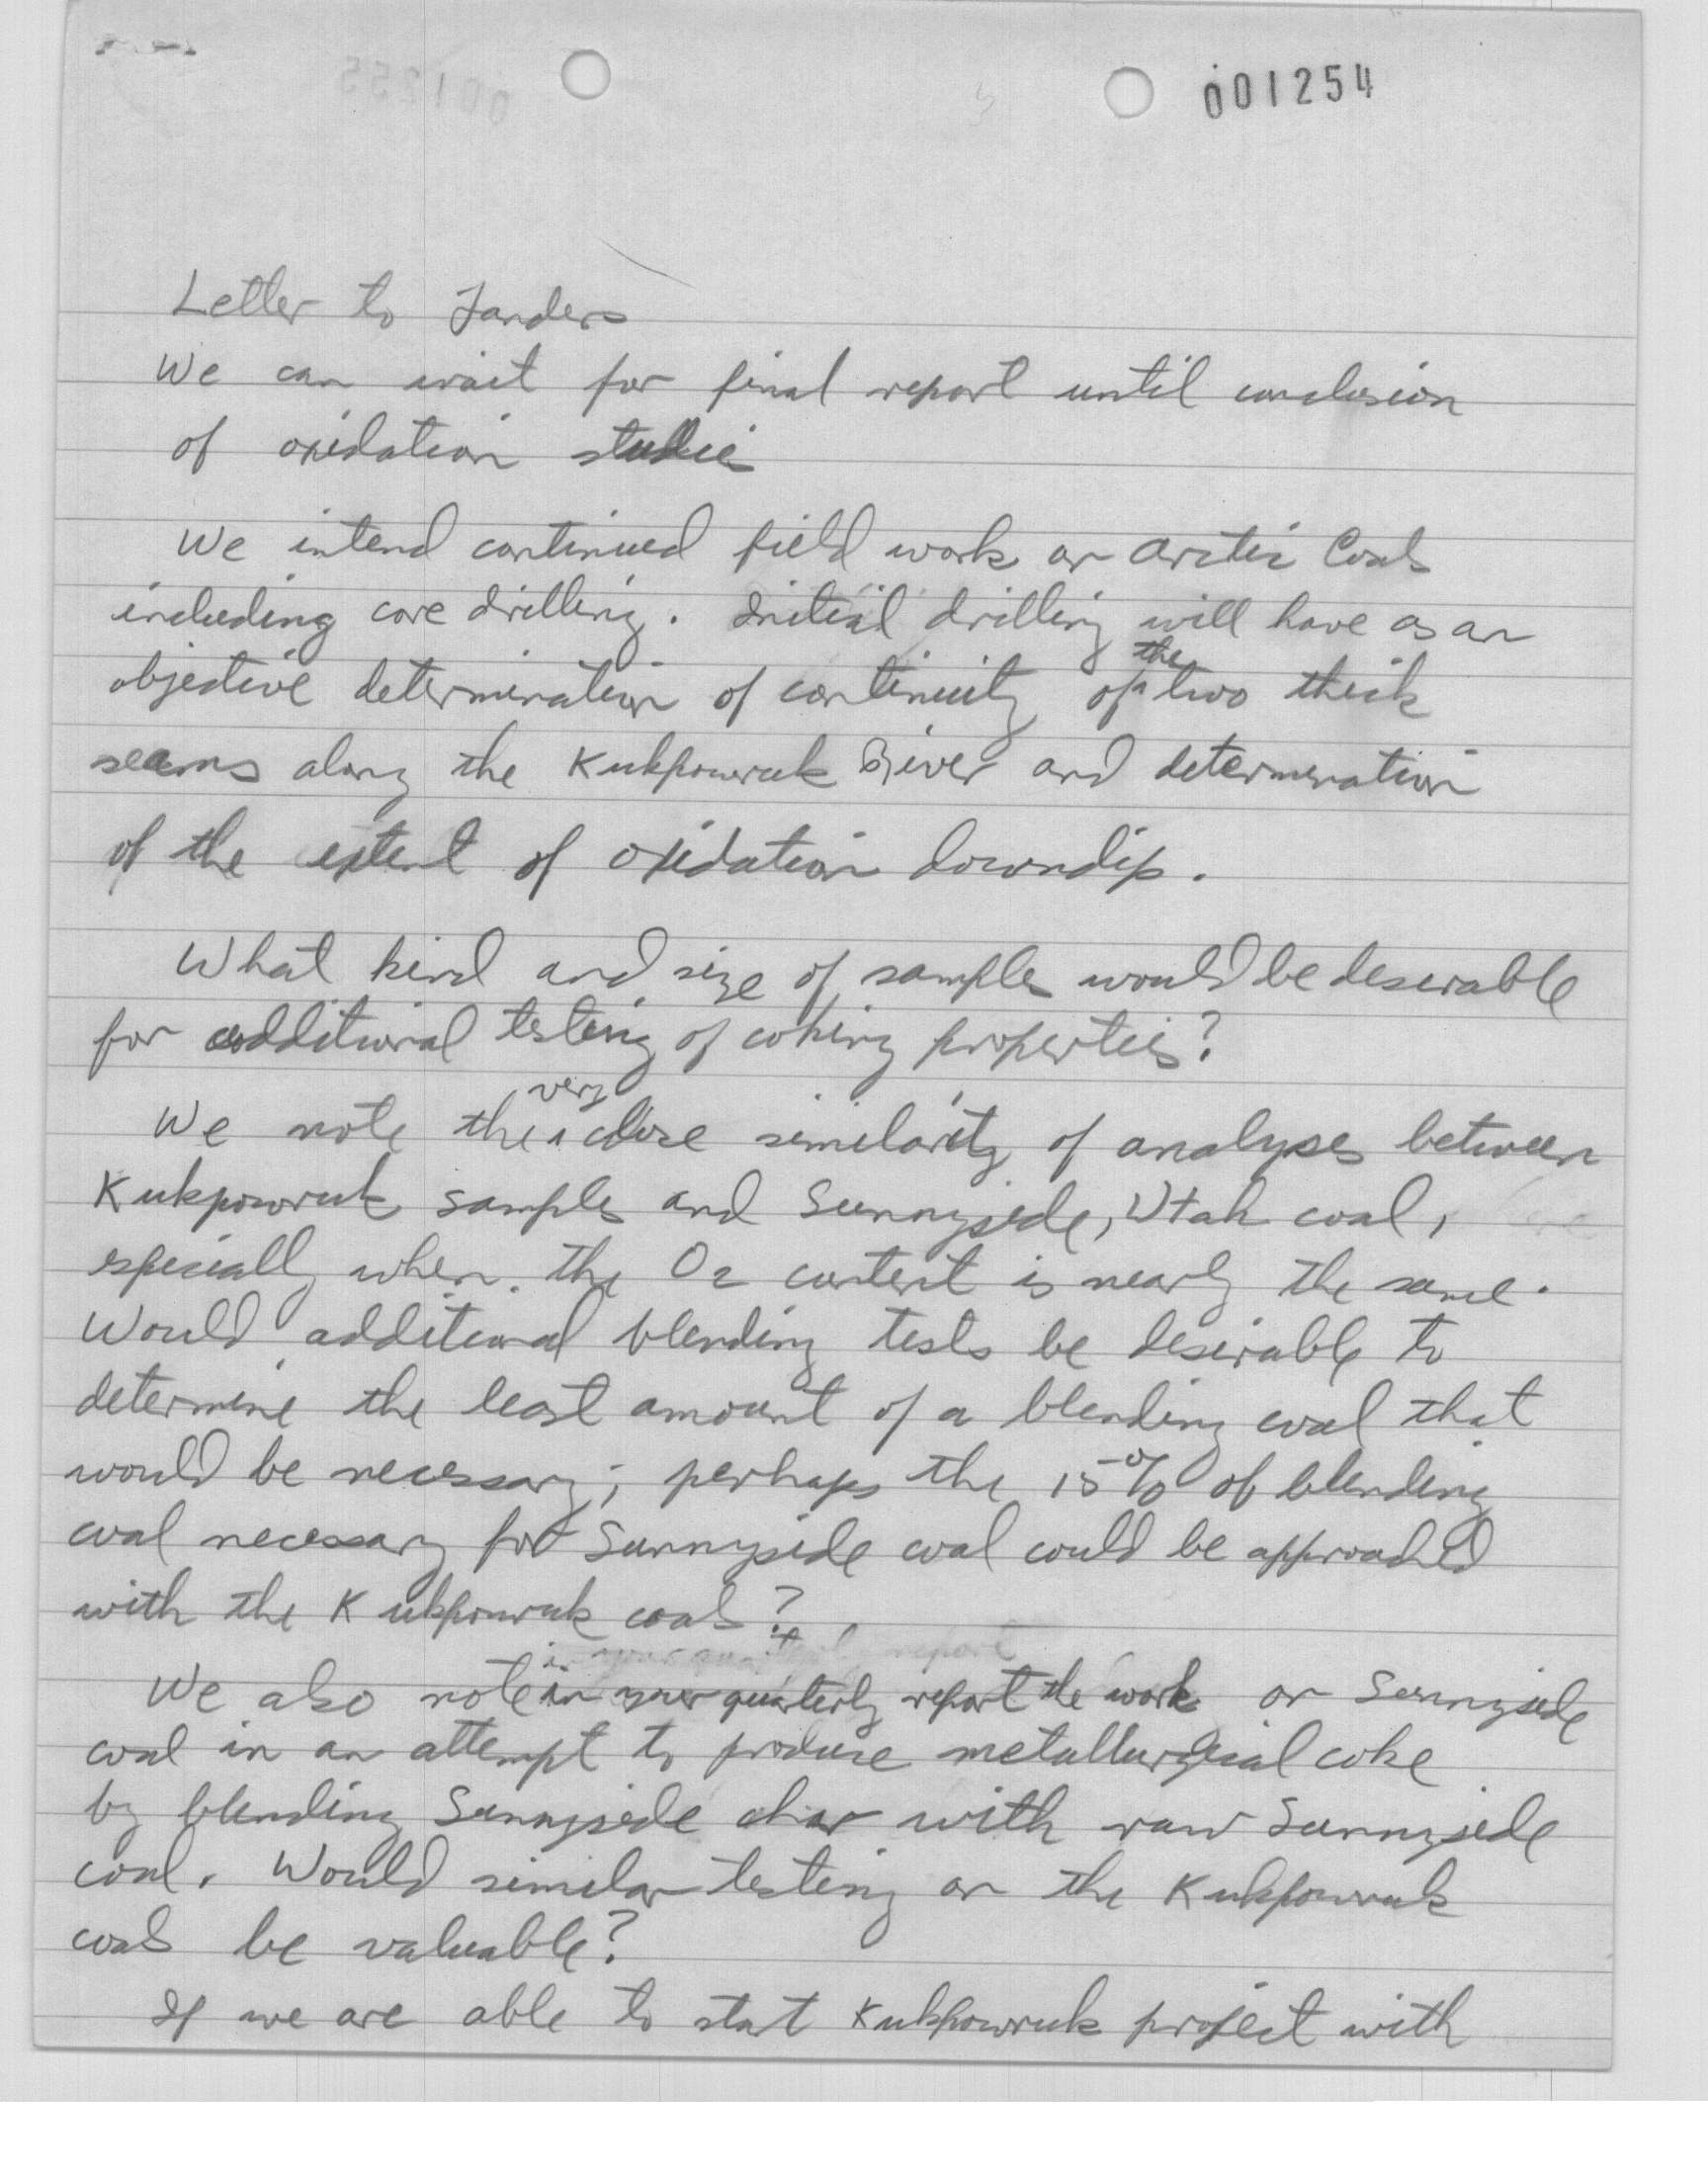 001254
Letter to Landers
We can wait for final report until conclusion
of oxidation studies
We intend continued field work on Arctic Coals
including core drilling. Initial drilling will have as an
the
objective determination of continuity of two thick
seams along the Kukpowruk River and determination
of the extent of oxidation downdip.
What kind and size of samples would be desirable
for additional testing of coking properties?
very
We note the close similarity of analyses between
Kukpowruk samples and Sunnyside, Utah coal,
especially when the O2 content is nearly the same.
Would additional blending tests be desirable to
determine the least amount of a blending coal that
would be necessary; perhaps the 15% of blending
coal necessary for Sunnyside coal could be approached
with the Kukpowruk coals?
We also note in your quarterly report the work on Sunnyside
coal in an attempt to produce metallurgical coke
by blending Sunnyside char with raw Sunnyside
coal. Would similar testing on the Kukpowruk
coals be valuable?
If we are able to start Kukpowruk project with